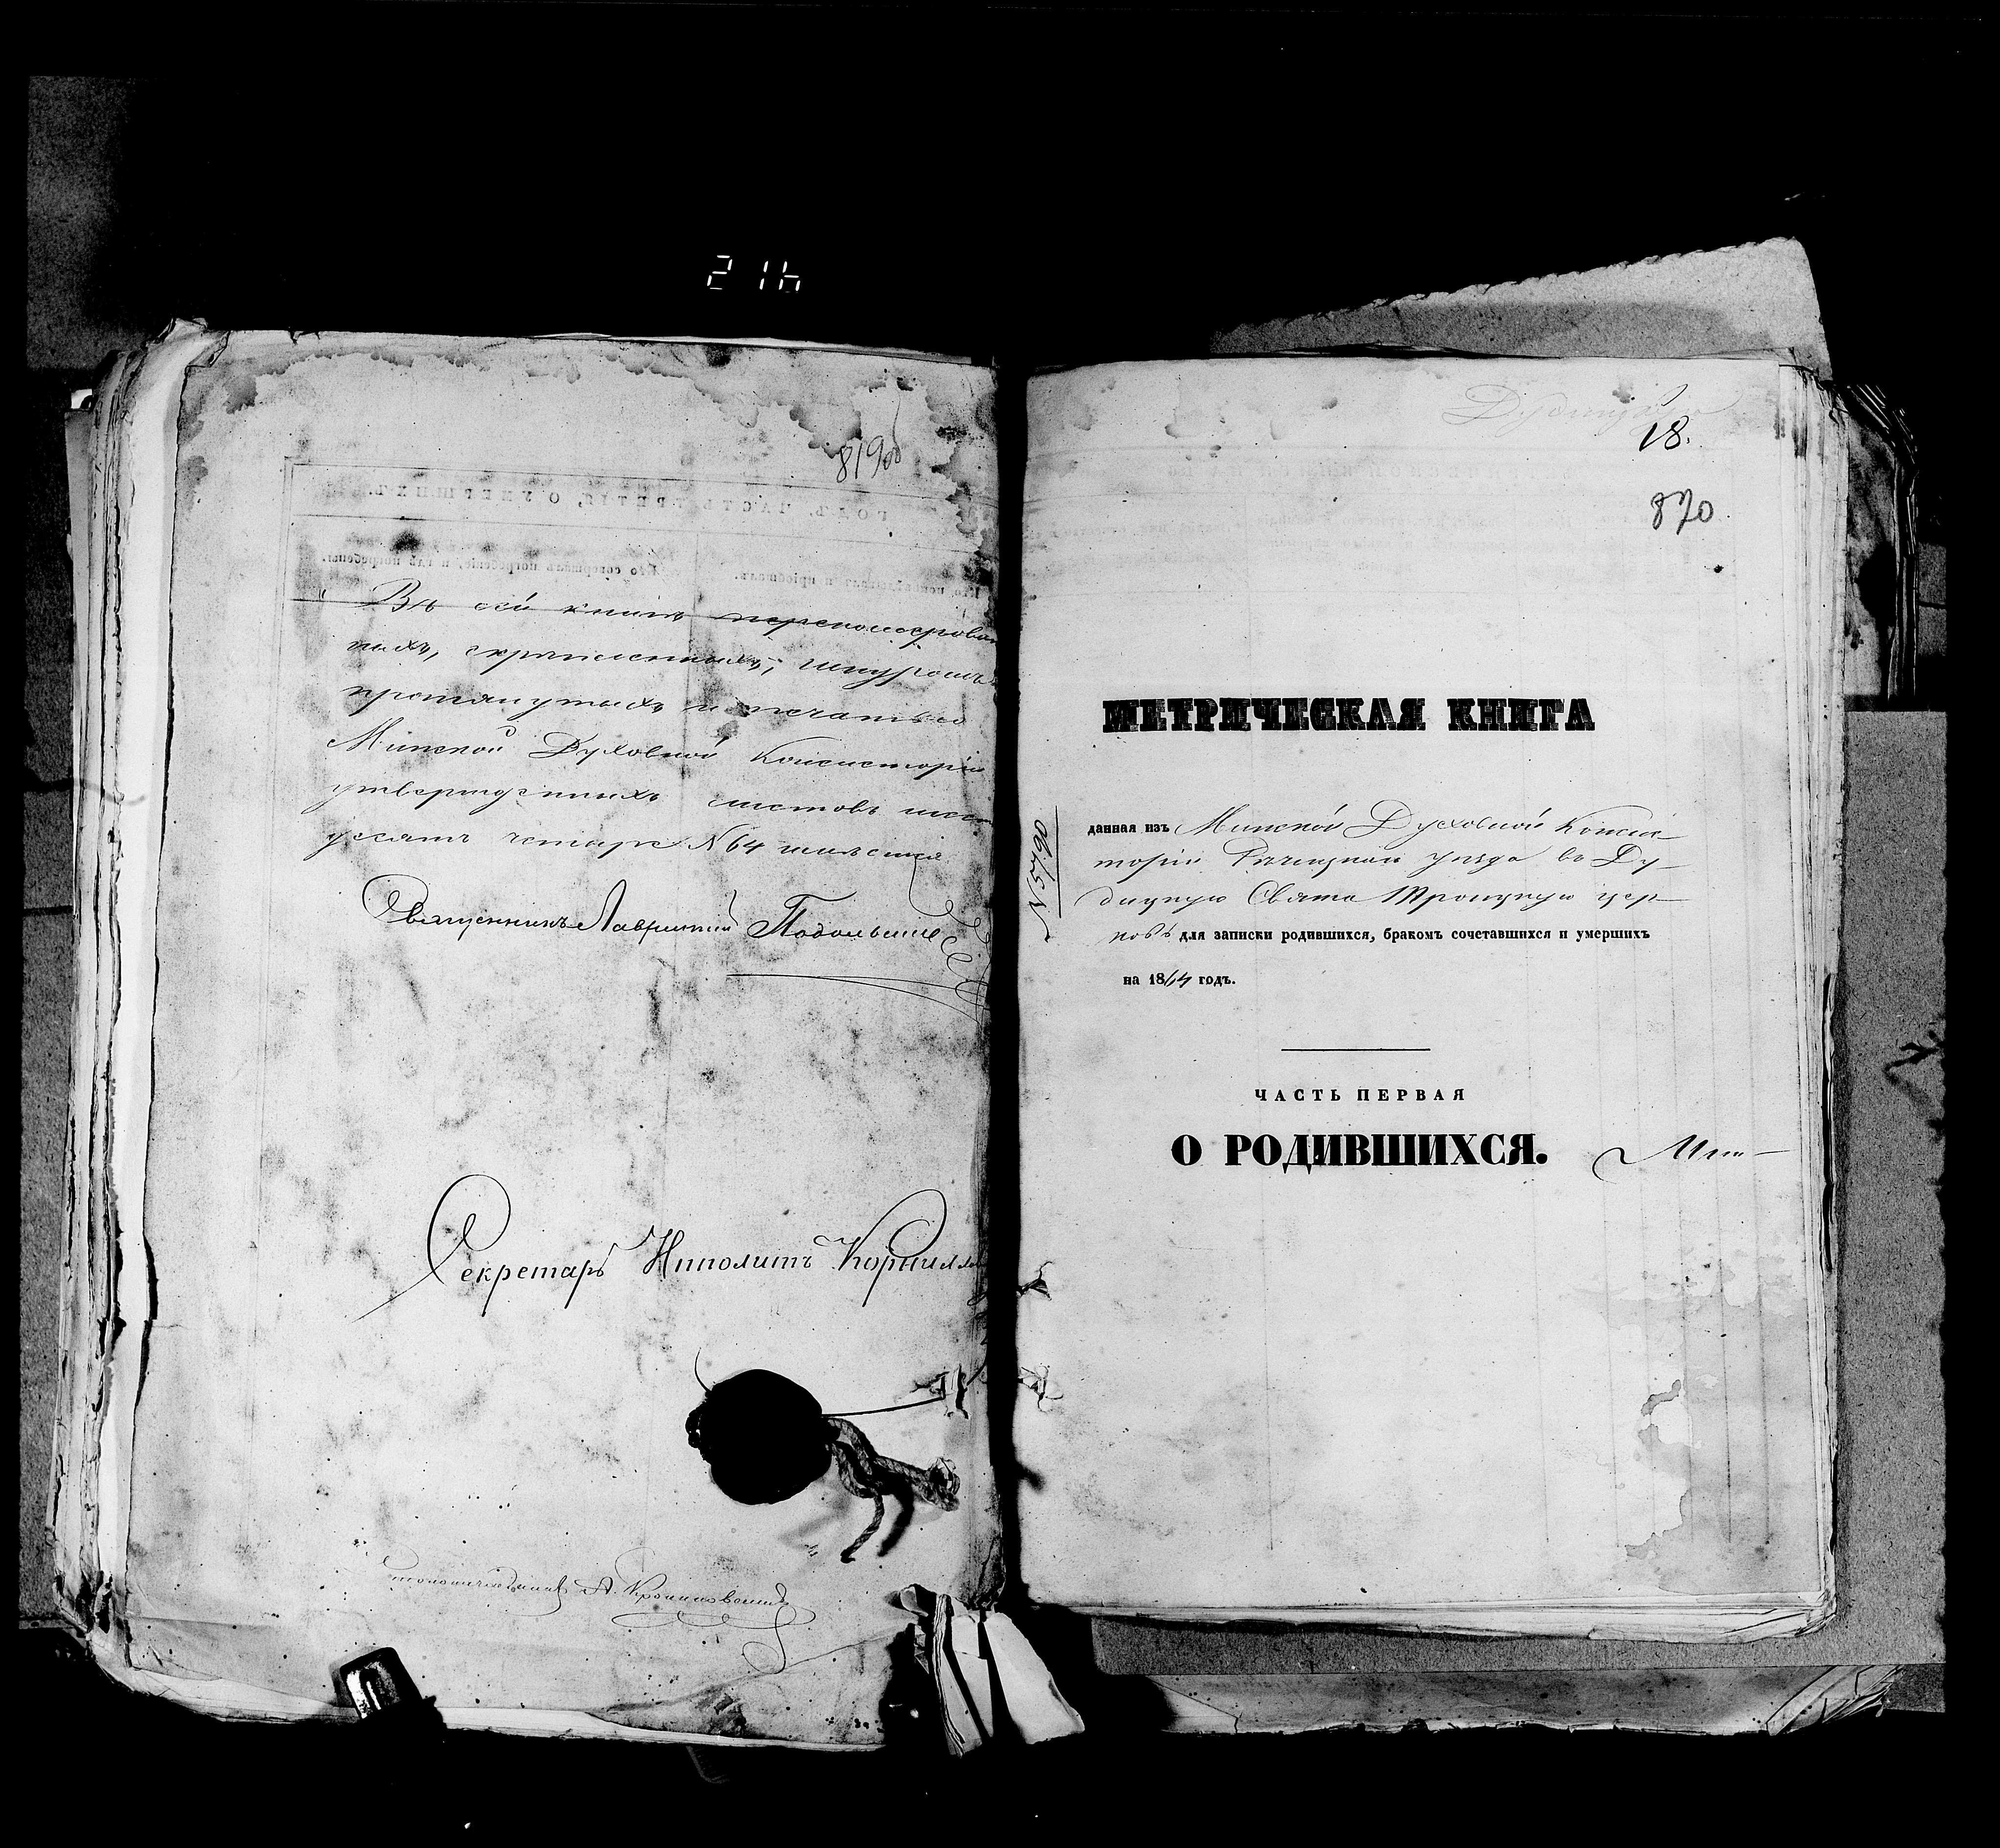 216
819 об
Въ сей книгѣ перенумерован
ныхъ, скрѣпленныхъ, шнуромъ
протянутыхъ и печатью
Минской Духовной Консисторіи
утвержденныхъ листовъ шест
десятъ четыре № 64 числится
Священникъ Лаврентій
Секретарь Иполитъ
Столоначальникъ А.
18.
870
МЕТРИЧЕСКАЯ КНИГА
№ 5790
данная изъ Минской Духовной Консис-
торіи Рѣчицкаго уѣзда въ Ду-
дицкую Свято Троицкую цер-
ковь для записки родившихся, бракомъ сочетавшихся и умершихъ
на 1864 годъ.
ЧАСТЬ ПЕРВАЯ
О РОДИВШИХСЯ.
Мин-